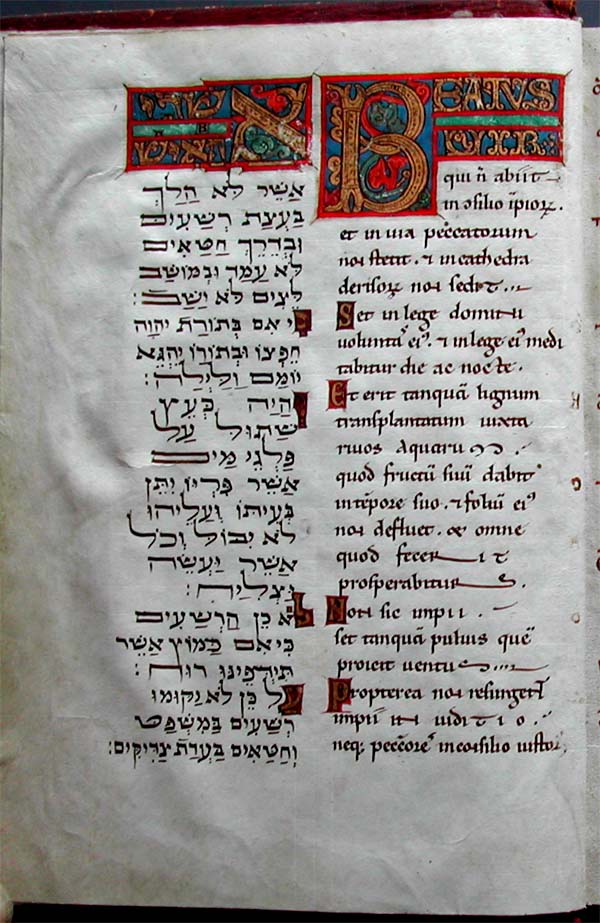 אשרי
האיש
אשר לא הלך
בעצת רשעים
ובדרך חטאים
לא עמד ובמושב
לצים לא ישב:
כי אם בתורת יהוה
חפצו ובתורתו יהגה
יומם ולילה:
והיה כעץ
שתול על
פלגי מים
אשר פריו יתן
בעיתו ועליהו
לא יבול וכל
אשר יעשה
יצליח:
לא כן הרשעים
כי אם כמוץ אשר
תידפינו רוח:
על כן לא יקומו
רשעים במשפט
וחטאים בעדת צדיקים:
BEATVS
VIR.
qui n̄ abiit
in ɔsilio īpioꝝ.
et in via peccatorum
non stetit. & in cathedra
derisoꝝ non sedit...
Set in lege domini
voluntas ei᾽. & in lege ei᾽ medi
tabitur die ac nocte.
Et erit tanquā lignum
transplantatum iuxta
rivos aquarum
quod fructū suū dabit
in tēpore suo. & foliū ei᾽
non defluet. & omne
quod fecerit
prosperabitur
Non sic impii.
set tanquā pulvis quē
proicit ventus...
Propterea non resurgent
impii in iuditio.
neq; peccatores in consilio iustor.